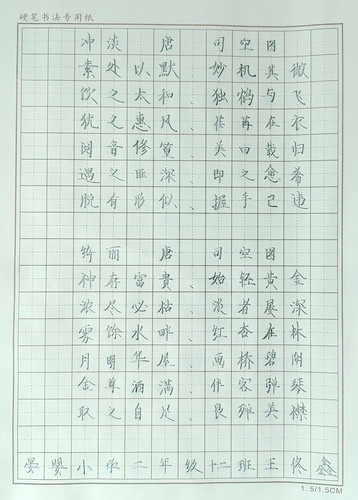 硬笔书法专用纸
冲淡 唐 司空图
素处以默、妙机其微
饮之太和、独鹤与飞
犹之惠风、荏苒在衣
阅音修篁、美曰载归
遇之匪深、即之愈希
脱有形似、握手已违
绮丽 唐 司空图
神存富贵、始轻黄金
浓尽必枯、淡者屡深
雾馀水畔、红杏在林
月明华屋、画桥碧阴
金尊酒满、伴客弹琴
取之自足、良殚美襟
小学二年级十二班王佟鑫
1.5/1.5CM